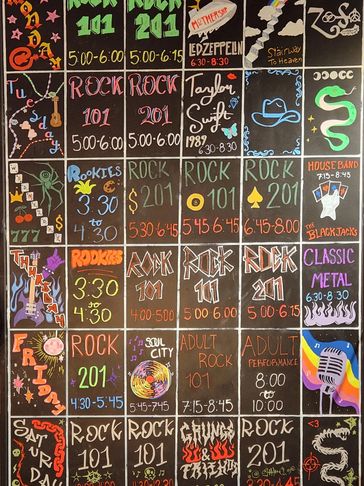 MONDAY
ROCK
101
5:00-6:00
ROCK
201
5:00-6:15
MOTHERSHIP
LED ZEPPELIN
6:30-8:30
Stairway
To Heaven
Tuesday
ROCK
101
5:00-6:00
ROCK
201
5:00-6:00
Taylor
Swift
1989
6:30-8:30
777
$
ROOKIES
3:30
to
4:30
ROCK
$201
5:30-6:45
ROCK
101
5:45-6:45
ROCK
201
6:45-8:00
HOUSE BAND
7:15-8:45
THE
BLACKJACKS
THURSDAY
ROOKIES
3:30
to
4:30
ROCK
101
4:00-5:00
ROCK
101
5:00-6:00
ROCK
201
5:00-6:15
CLASSIC
METAL
6:30-8:30
FRIDAY
ROCK
201
4:30-5:45
SOUL
CITY
5:45-7:45
ADULT
ROCK
101
7:15-8:45
ADULT
PERFORMANCE
8:00
to
10:00
SATURDAY
ROCK
101
ROCK
101
GRUNGE
&
FRIENDS
ROCK
201
<3